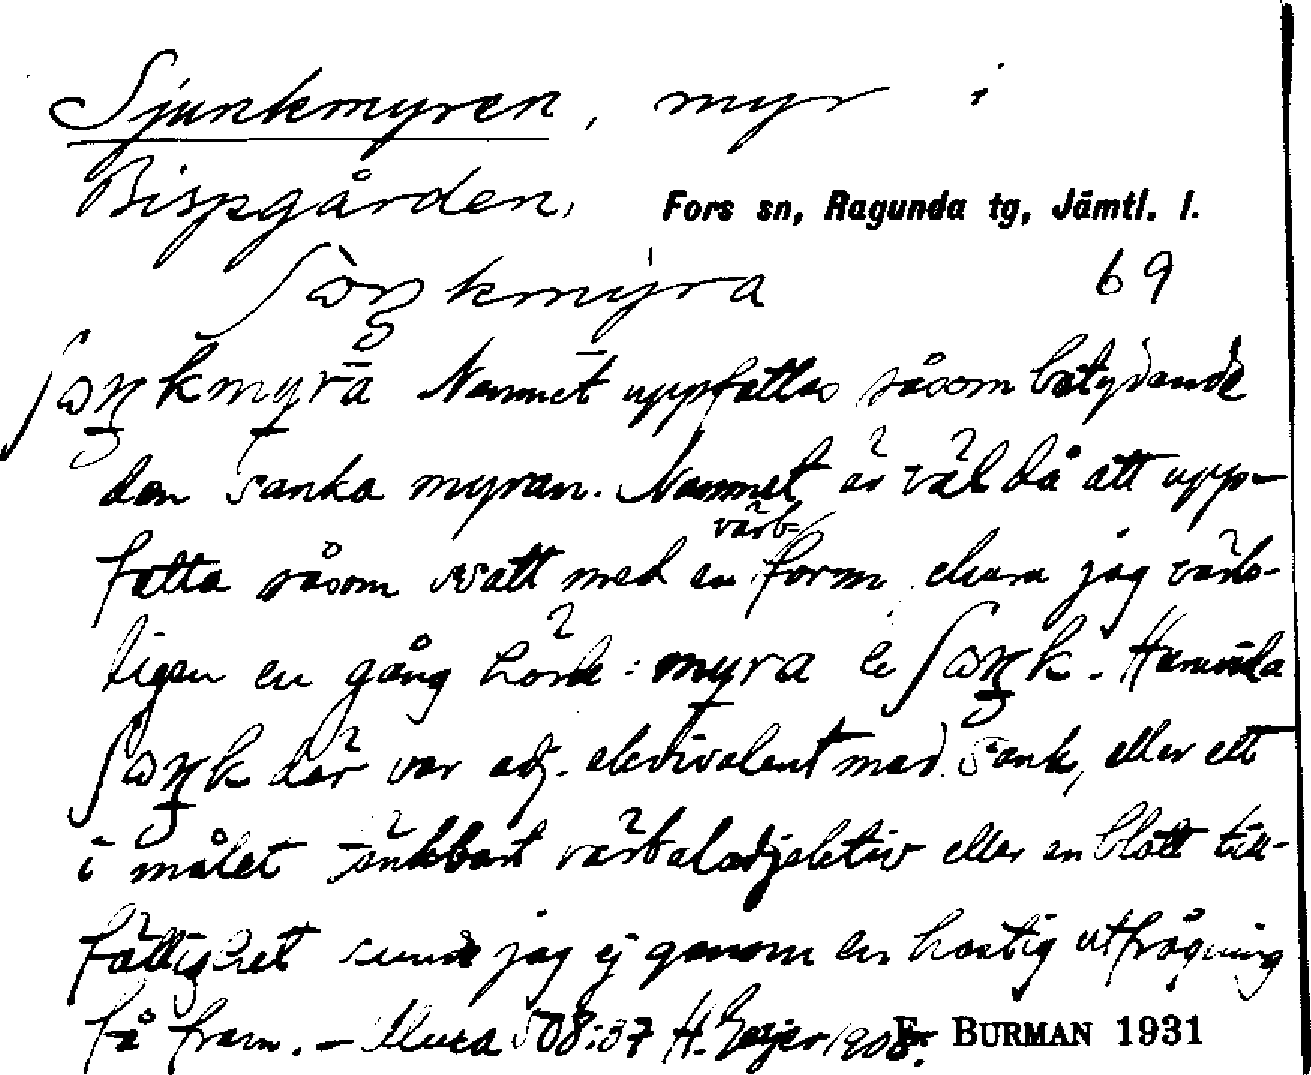 Sjunkmyren, myr i
Bispgården, Fors sn, Ragunda tg, Jämtl. l.
69
Namnet uppfattas såsom betydande
den sanka myran. Namnet är väl då att upp-
fatta såsom satt med en värb-form, ehuru jag värk-
ligen en gång hörde: myra
där var adj. ekvivalent med sank, eller ett
i målet tänkbart värbaladjektiv eller en blott till-
fällighet kunde jag ej genom en hastig utfrågning
få fram. – 508:37 H. Geijer 1908. E. BURMAN 1931